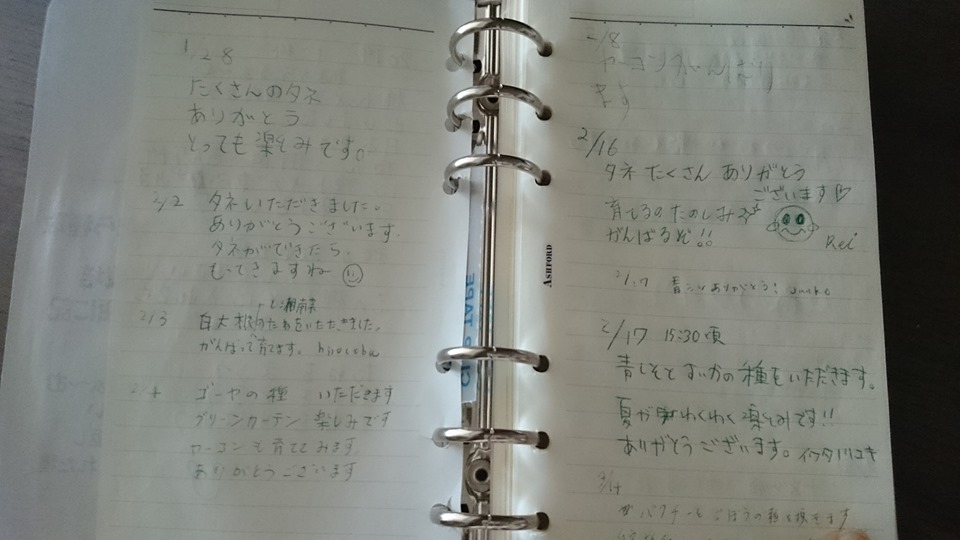 1/28
たくさんのタネ
ありがとう
とっても楽しみです。
2/2 タネいただきました。
ありがとうございます。
タネができたら
もってきますね
2/3 白大根のたねをいただきました。
がんばって育てます。 hirocobu
ゴーヤの種 いただきます
グリーンカーテン 楽しみです
ヤーコンも育ててみます
ありがとうございます
ASHFORD
/8
ヤーコンがんばり
ます
2/16
タネ たくさん ありがとう
ございます♡
育てるの たのしみ
がんばるぞ!!
Rei
2/17 青シソありがとう!
2/17 15:30頃
青しそとすいかの種をいただきます。
夏が わくわく 楽しみです!!
ありがとうございます。
パクチーとごぼうの種を